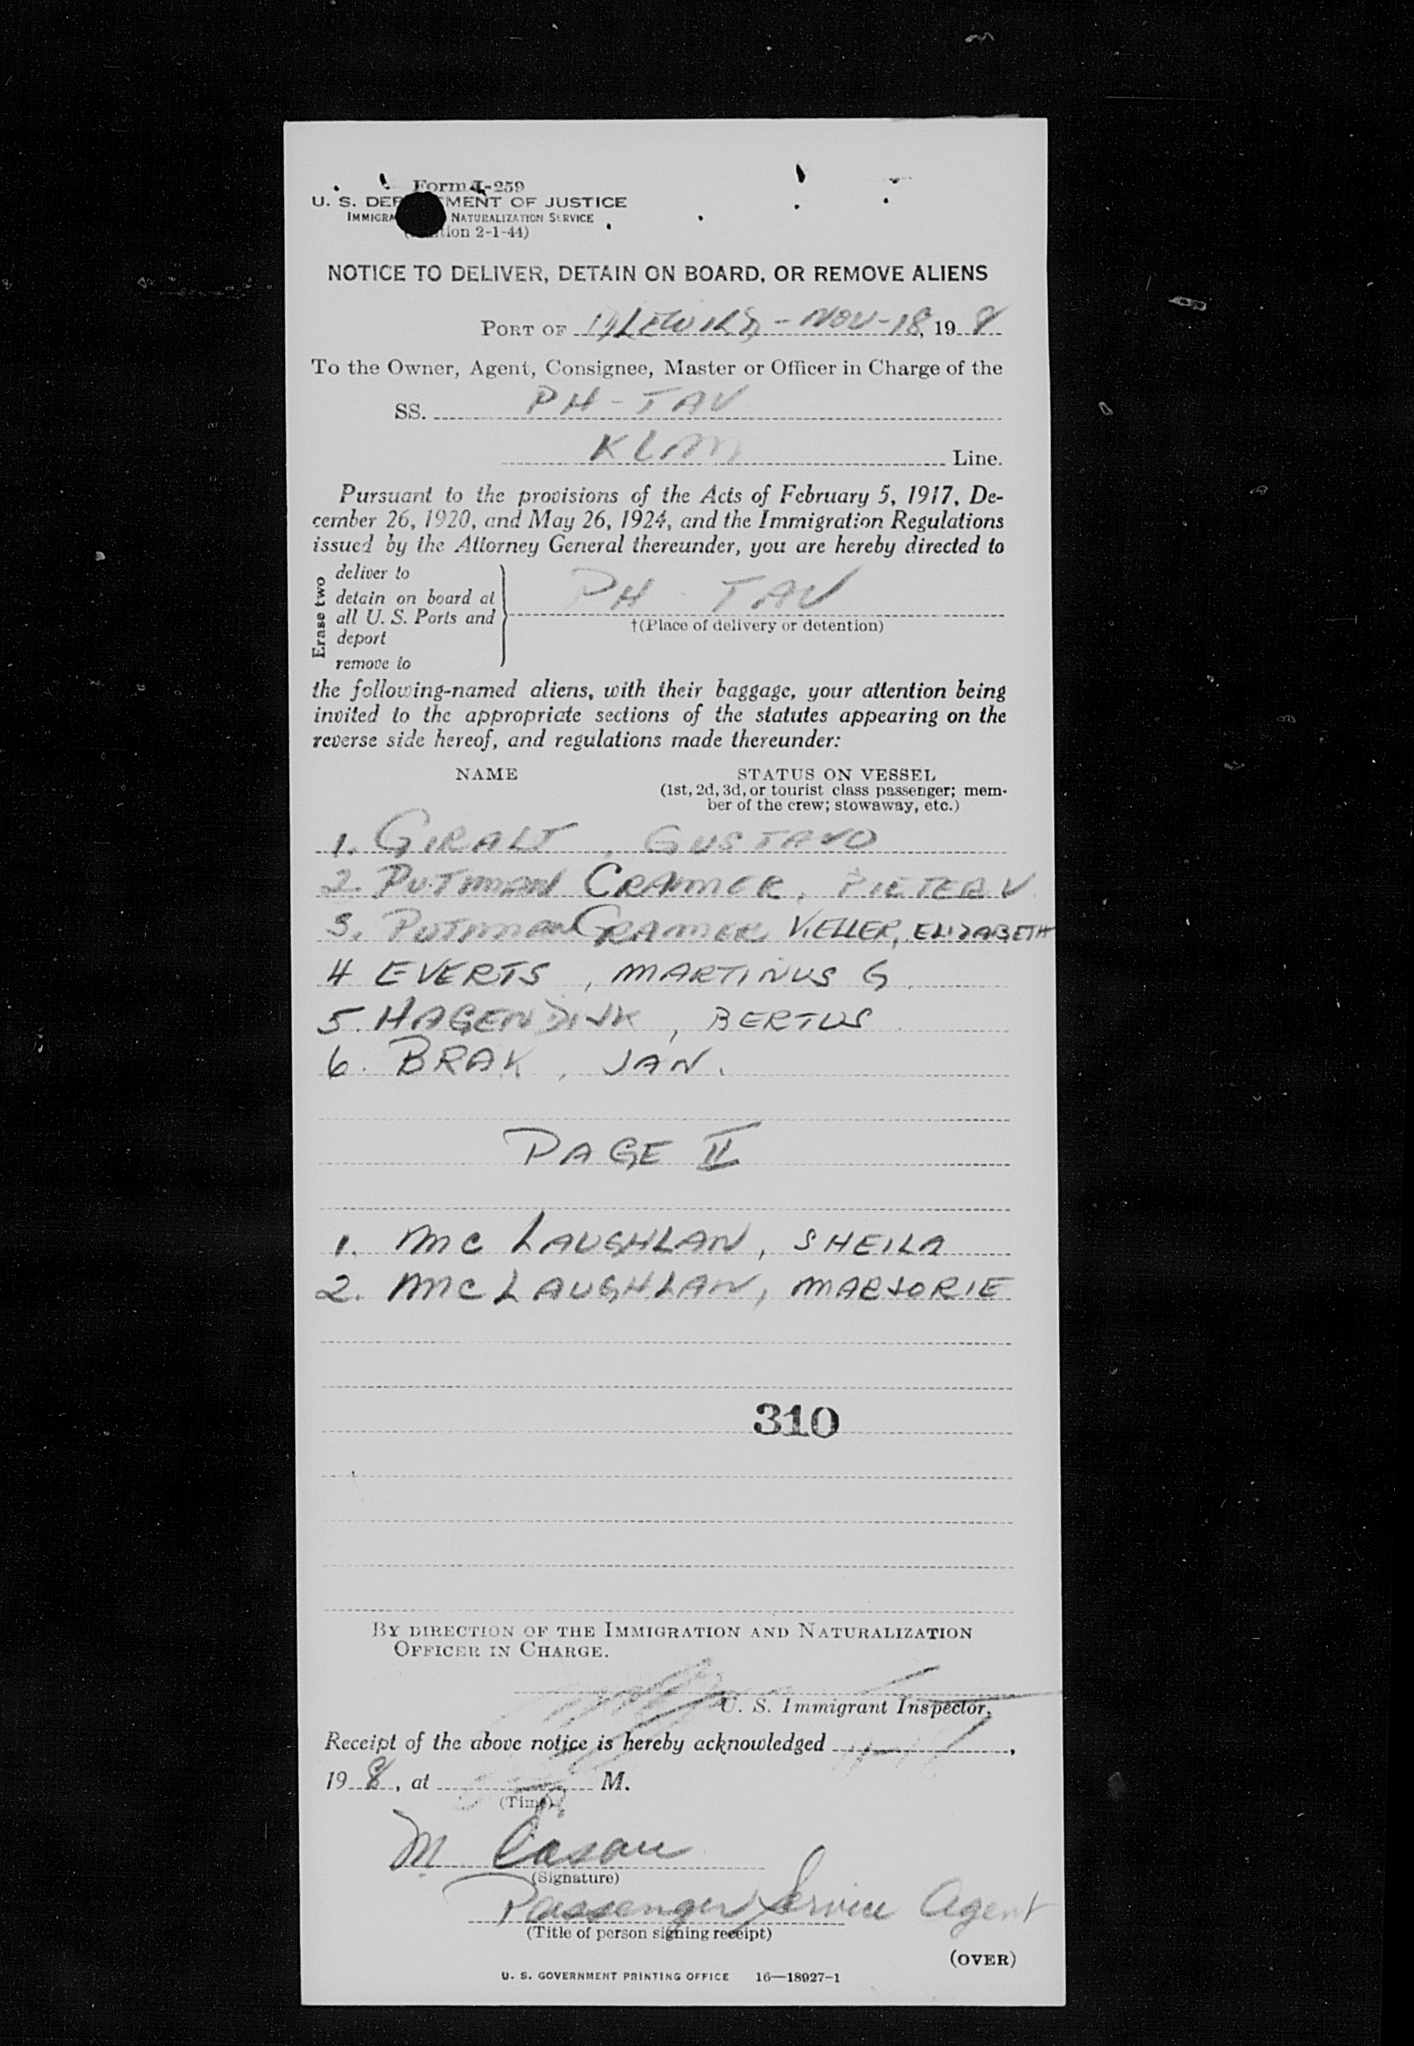 Form I-259
U. S. DEP MENT OF JUSTICE
IMMIGRA NATURALIZATION SERVICE
(tion 2-1-44)
NOTICE TO DELIVER, DETAIN ON BOARD, OR REMOVE ALIENS
PORT OF IDLEWILD - NOV - 18, 19 8
To the Owner, Agent, Consignee, Master or Officer in Charge of the
SS. PH - TAV
KLM Line.
Pursuant to the provisions of the Acts of February 5, 1917, De-
cember 26, 1920, and May 26, 1924, and the Immigration Regulations
issued by the Attorney General thereunder, you are hereby directed to
Erase two
deliver to
detain on board at
all U. S. Ports and
deport
remove to
PH - TAV
†(Place of delivery or detention)
the following-named aliens, with their baggage, your attention being
invited to the appropriate sections of the statutes appearing on the
reverse side hereof, and regulations made thereunder:
NAME STATUS ON VESSEL
(1st, 2d, 3d, or tourist class passenger; mem-
ber of the crew; stowaway, etc.)
1. GIRALT, GUSTAVO
2. PUTMAN CRAMER, PIETER V
3. PUTMAN CRAMER V.ELLER, ELIZABETH
4 EVERTS, MARTINUS G.
5. HAGENDIJK, BERTUS
6. BRAK, JAN.
PAGE II
1. MC LAUGHLAN, SHEILA
2. MC LAUGHLAN, MARJORIE
310
BY DIRECTION OF THE IMMIGRATION AND NATURALIZATION
OFFICER IN CHARGE.
U. S. Immigrant Inspector.
Receipt of the above notice is hereby acknowledged ,
19 8, at M.
(Time)
M. Casau
(Signature)
Passenger Service Agent
(Title of person signing receipt)
(OVER)
U. S. GOVERNMENT PRINTING OFFICE 16—18027-1